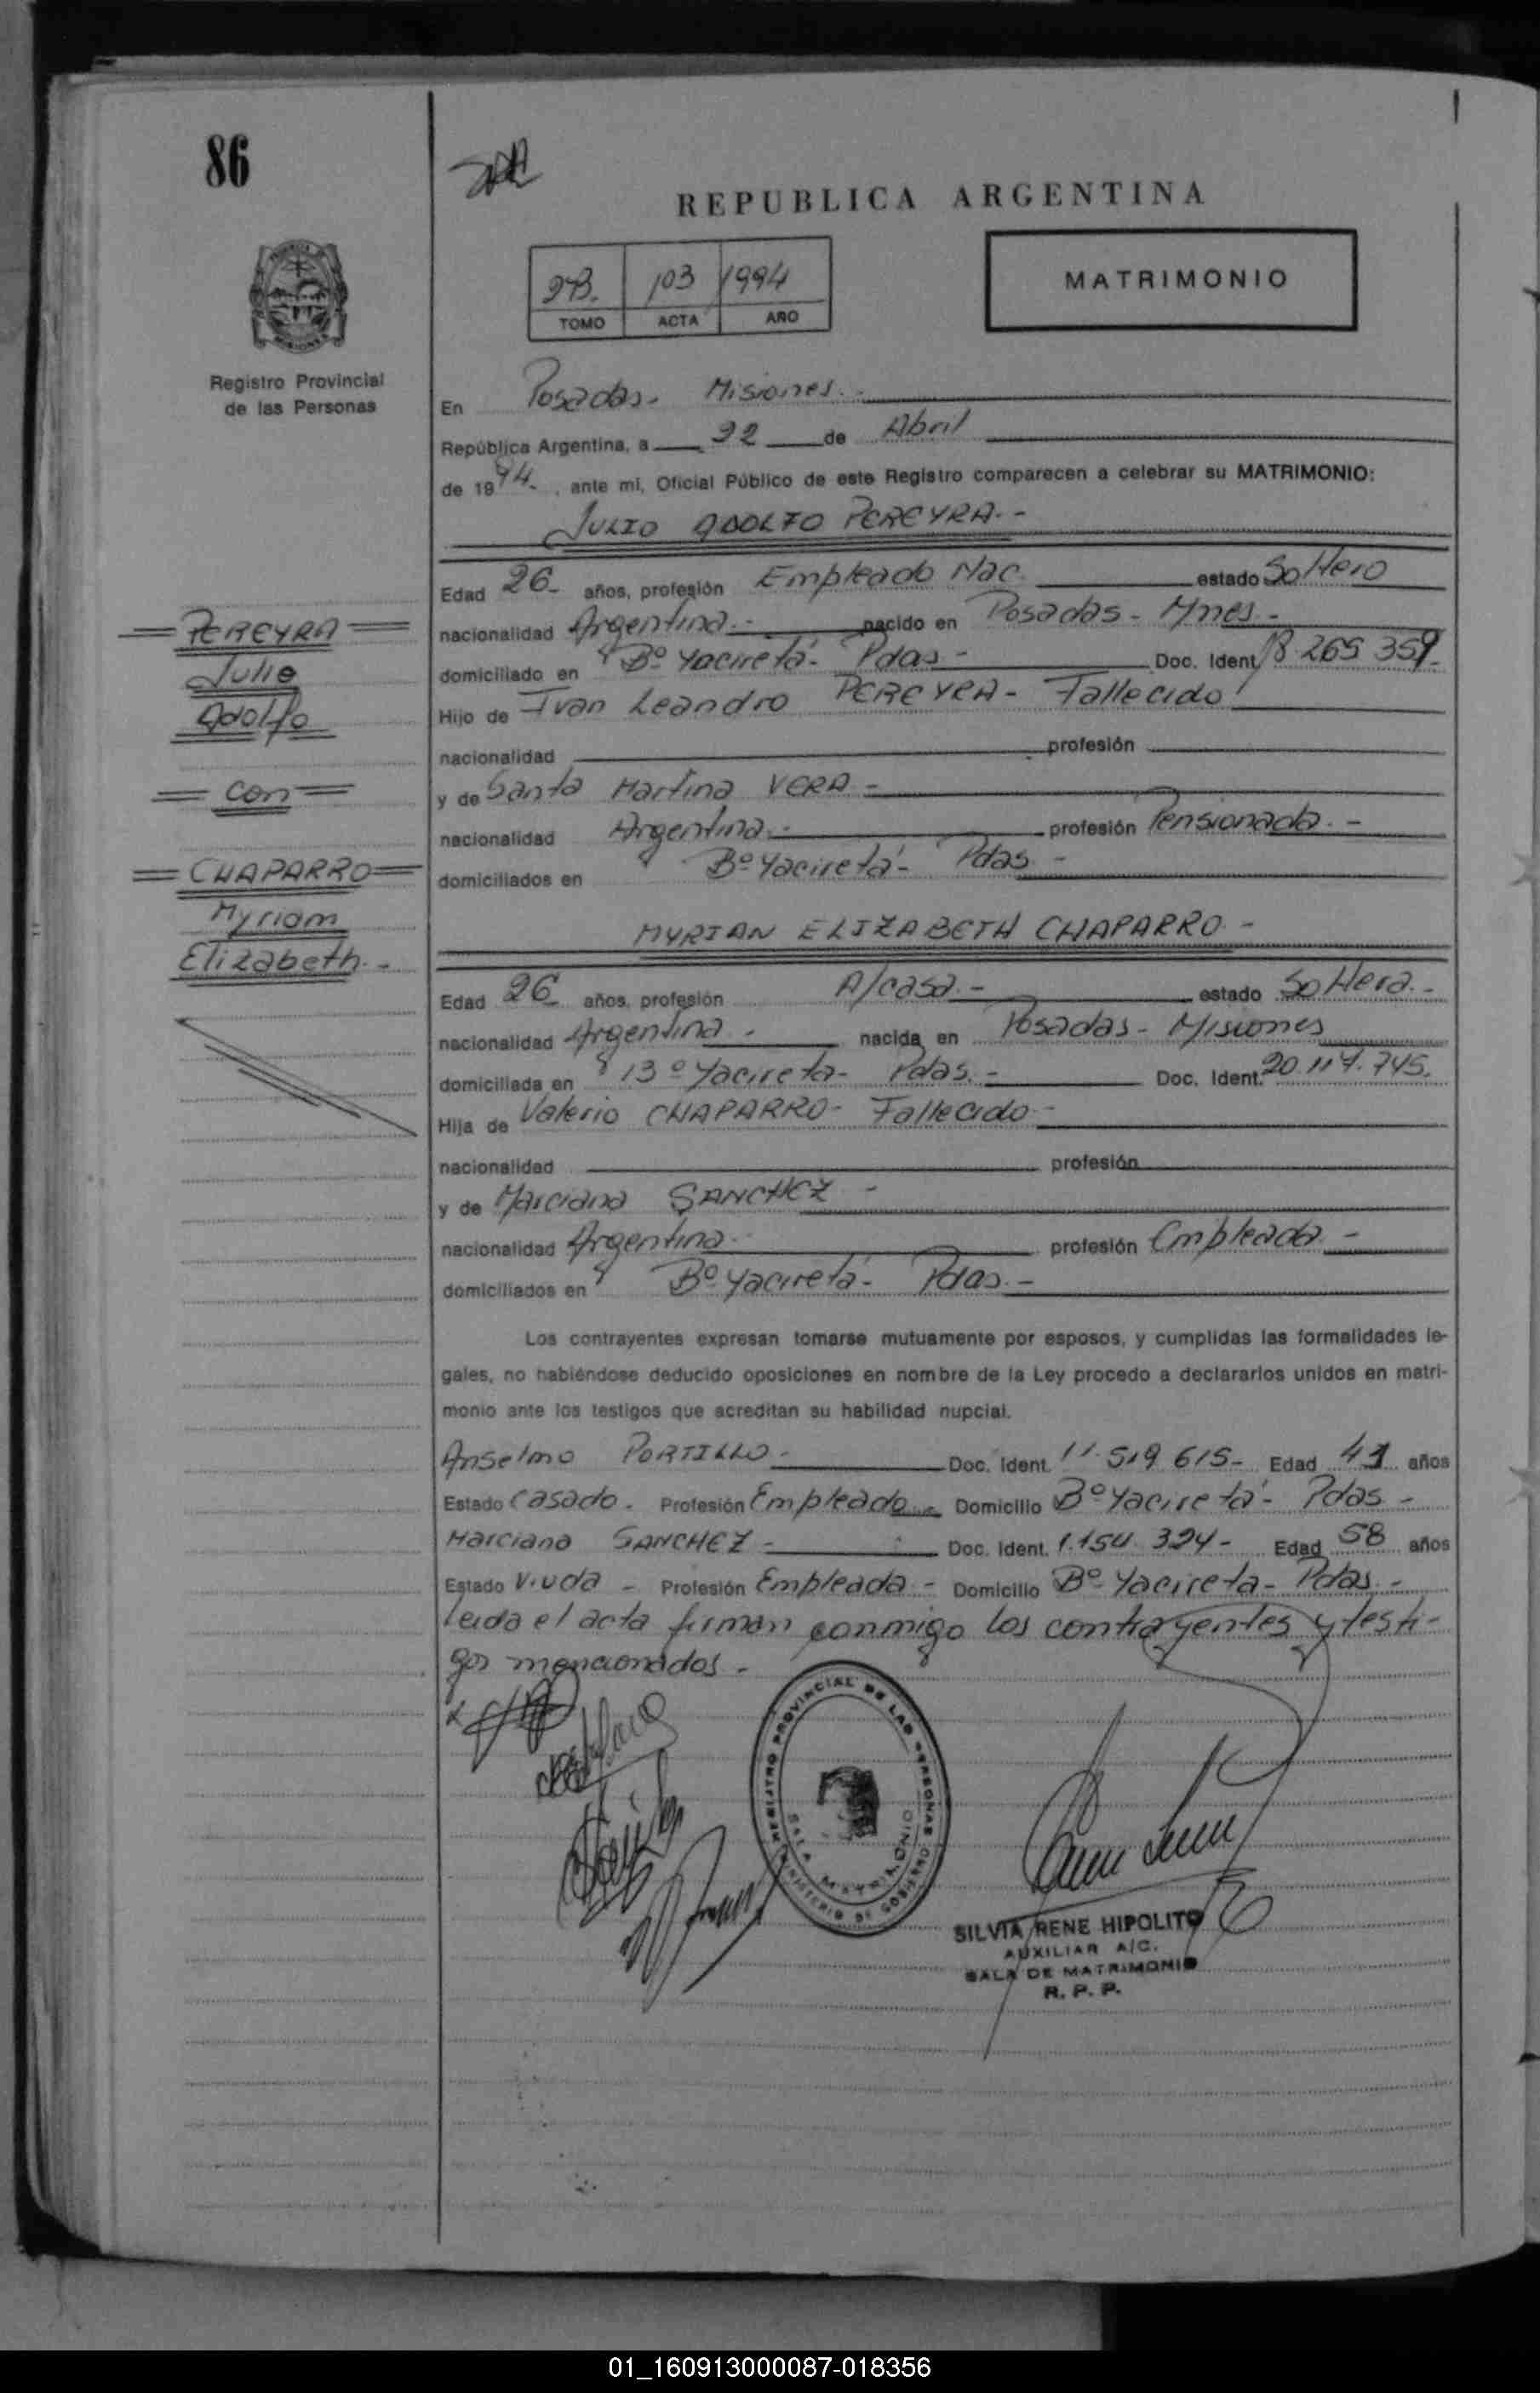 86
REPUBLICA ARGENTINA
MATRIMONIO
103 1994
TOMO ACTA AÑO
Registro Provincial
de las Personas
En Posadas. Misiones.
República Argentina, a 22 de Abril
de 1994. , ante mí, Oficial Público de este Registro comparecen a celebrar su MATRIMONIO:
JULIO ADOLFO PEREYRA.-
Edad 26 años, profesión Empleado Nac. estado Soltero
nacionalidad Argentina.- nacido en Posadas - Mnes -
domiciliado en Bº Yacireta - Pdas - Doc. Ident. 18.265.359.
Hijo de Ivan Leandro PEREYRA - Fallecido
nacionalidad profesión
y de Santa Martina VERA -
nacionalidad Argentina.- profesión Pensionada. -
domiciliados en Bº Yaciretá - Pdas -
PEREYRA
Julio
Adolfo
con
CHAPARRO
Myriam
Elizabeth -
MYRIAN ELIZABETH CHAPARRO -
Edad 26 años, profesión A/casa - estado Soltera -
nacionalidad Argentina - nacida en Posadas - Misiones
domiciliada en Bº Yacireta - Pdas. - Doc. Ident. 20.117.745.
Hija de Valerio CHAPARRO - Fallecido -
nacionalidad profesión
y de Marciana SANCHEZ -
nacionalidad Argentina profesión Empleada -
domiciliados en Bº Yacireta - Pdas. -
Los contrayentes expresan tomarse mutuamente por esposos, y cumplidas las formalidades le-
gales, no habiéndose deducido oposiciones en nombre de la Ley procedo a declararlos unidos en matri-
monio ante los testigos que acreditan su habilidad nupcial.
Anselmo PORTILLO - Doc. Ident. 11.519.615 - Edad 41 años
Estado Casado. Profesión Empleado - Domicilio Bº Yacireta - Pdas -
Marciana SANCHEZ - Doc. Ident. 1.154.324 - Edad 58 años
Estado Viuda - Profesión Empleada - Domicilio Bº Yacireta - Pdas. -
Leida el acta firman conmigo los contrayentes y testi-
gos mencionados -
REGISTRO PROVINCIAL DE LAS PERSONAS
SALA MATRIMONIO
MINISTERIO DE GOBIERNO
SILVIA RENE HIPOLITO
AUXILIAR A/C.
SALA DE MATRIMONIO
R. P. P.
01_160913000087-018356